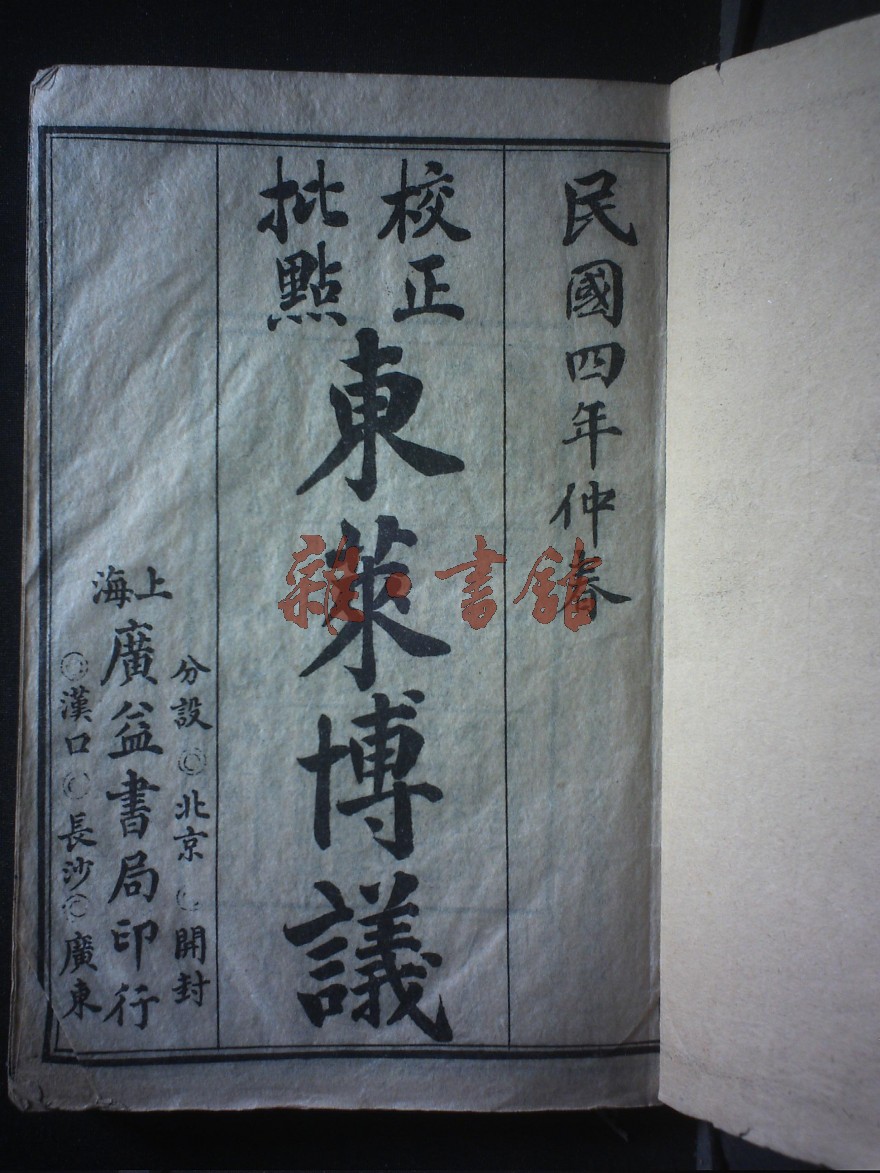 民國四年仲春
校正
批點
東萊博議
分設◎北京◎開封
上海
廣益書局印行
◎漢口◎長沙◎廣東
雜·書館